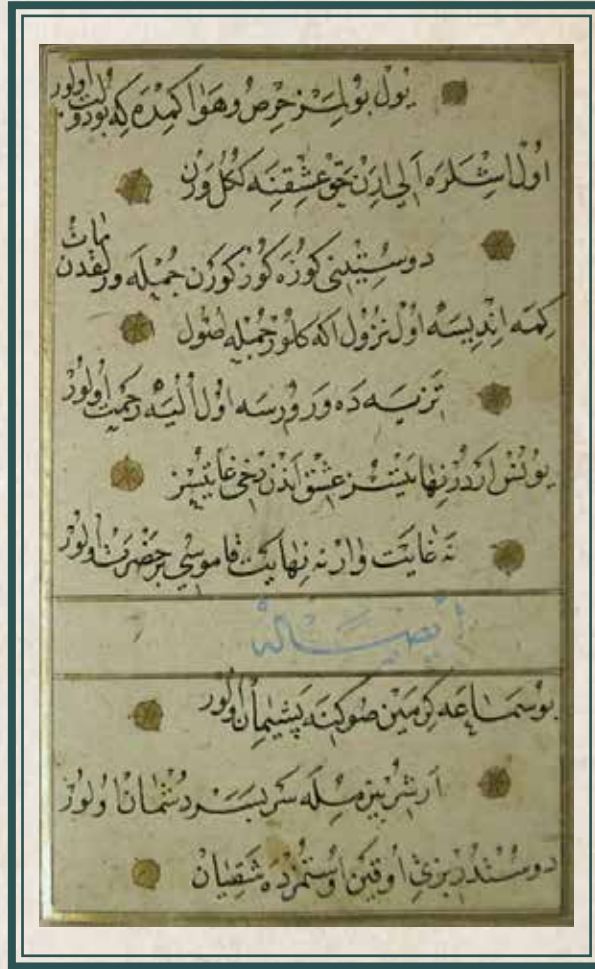 یول بولمز حرص و هوا کمده که بو دولت اولور
اول اشلره الی ارن حق عشقنه ککل ورن
دوستینی کوزه کوز کورن جمیله ورلقدن
کمه اندیسه اول نزول اکه کلور جمیله اصول
نزیه ده ورورسه اول الیه رحمت اولور
یونس اردر نهایتسز عشق اندن دخی غایتسز
نه غایت وار نه نهایت قاموسی بر حضرت اولور
ایضاله
بو سماعه کرمین صوکنه پشیمان اولور
ارشر بیزمله سربسر دشمان اولور
دوستدر بزی اوقین اوستمزده شقیان